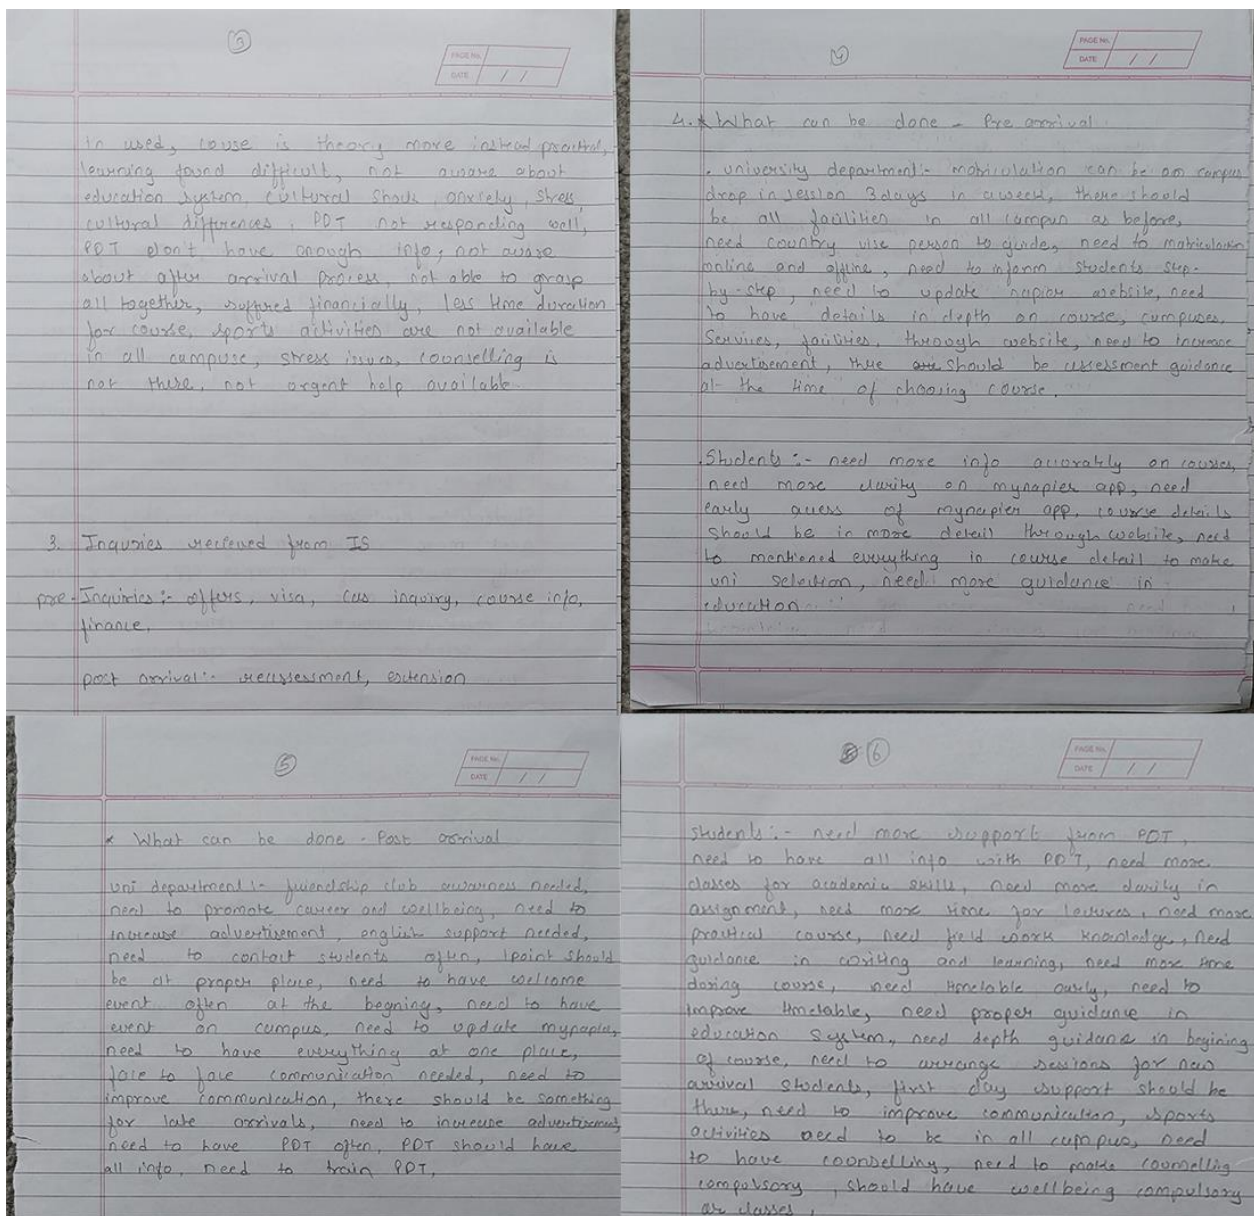 3
PAGE No.
DATE / /
in used, couse is theory more instead practral,
learning found difficult, not aware about
education system, cultural shock, anxiely, stress,
cultural differences, PDT not responding well,
PDT don't have enough info, not aware
about after arrival process, not able to grasp
all together, suffred financially, less time duration
for course, sports activities are not available
in all campuse, stress issues, counselling is
not there, not orgent help available.
3. Inquries recieved from IS
pre- Inquiries :- offers, visa, cas inquiry, course info,
finance.
post arrival :- reassessment, extension
4
PAGE No.
DATE / /
4. * What can be done - Pre arrival
. university department :- matriculation can be on campus
drop in session 3 days in a week, there should
be all facilities in all campus as before,
need country vise person to guide, need to matriculation
online and offline, need to inform students step-
by-step, need to update napier website, need
to have details in depth on course, campuses,
Services, failities, through website, need to increase
advertisement, there should be assessment guidance
at the time of choosing course.
. Students :- need more info accorately on courses,
need more clarity on mynapier app, need
early access of mynapier app, course details
should be in more detail through website, need
to mentioned everything in course detail to make
uni selection, need more guidance in
education
5
PAGE No.
DATE / /
* What can be done - Post arrival
uni department :- friendship club awarness needed,
need to promote career and wellbeing, need to
increase advertisement, english support needed,
need to contact students often, ipoint should
be at proper place, need to have welcome
event often at the begning, need to have
event on campus, need to update mynapier,
need to have everything at one place,
face to face communication needed, need to
improve communication, there should be something
for late arrivals, need to increase advertisement,
need to have PDT often, PDT should have
all info, need to train PDT,
6
PAGE No.
DATE / /
students :- need more support from PDT,
need to have all info with PDT, need more
classes for academic skills, need more clarity in
assignment, need more time for lectures, need more
practical course, need field work knowledge, need
guidance in writing and learning, need more time
doring course, need timetable early, need to
improve timetable, need proper guidance in
education system, need depth guidance in begining
of course, need to arrange sessions for new
arrival students, first day support should be
there, need to improve communication, sports
activities need to be in all campus, need
to have counselling, need to make counselling
compulsory, should have wellbeing compulsory
as classes,